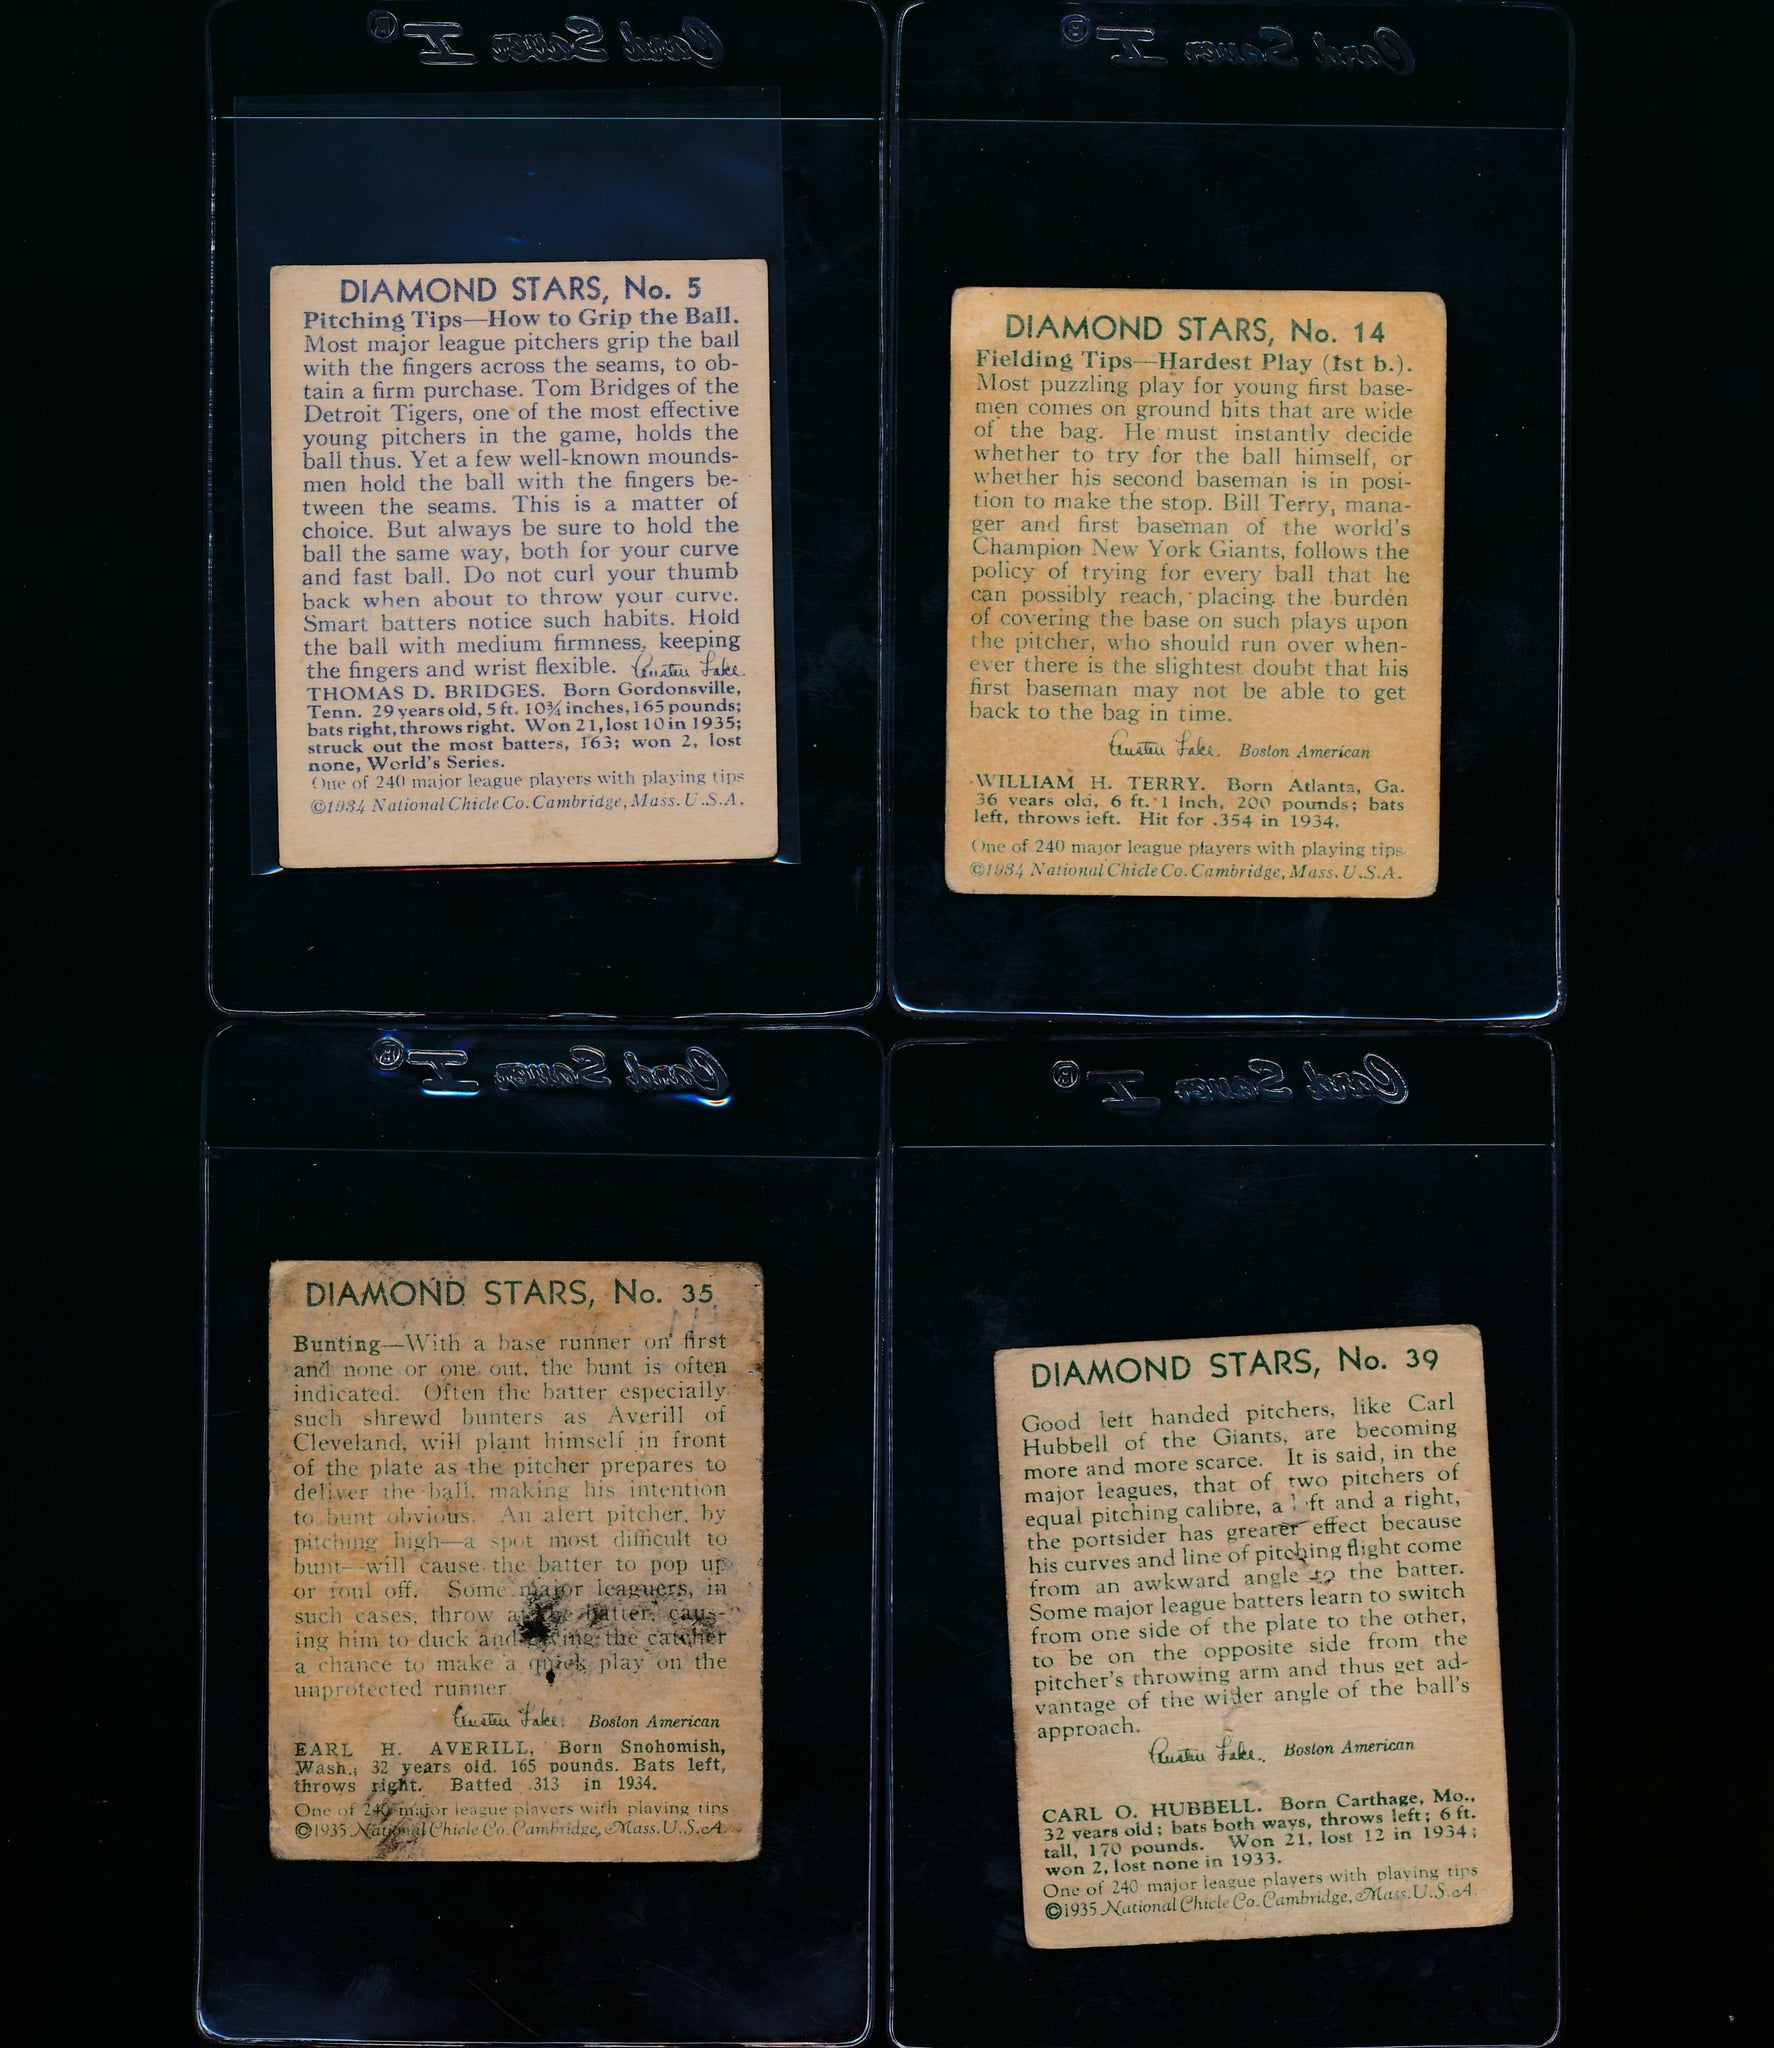 Card Saver I®
DIAMOND STARS, No. 5
Pitching Tips—How to Grip the Ball.
Most major league pitchers grip the ball
with the fingers across the seams, to ob-
tain a firm purchase. Tom Bridges of the
Detroit Tigers, one of the most effective
young pitchers in the game, holds the
ball thus. Yet a few well-known mounds-
men hold the ball with the fingers be-
tween the seams. This is a matter of
choice. But always be sure to hold the
ball the same way, both for your curve
and fast ball. Do not curl your thumb
back when about to throw your curve.
Smart batters notice such habits. Hold
the ball with medium firmness, keeping
the fingers and wrist flexible. Austen Lake
THOMAS D. BRIDGES. Born Gordonsville,
Tenn. 29 years old, 5 ft. 10¾ inches, 165 pounds;
bats right, throws right. Won 21, lost 10 in 1935;
struck out the most batters, 163; won 2, lost
none, World's Series.
One of 240 major league players with playing tips
©1934 National Chicle Co. Cambridge, Mass. U.S.A.
Card Saver I®
DIAMOND STARS, No. 14
Fielding Tips—Hardest Play (1st b.).
Most puzzling play for young first base-
men comes on ground hits that are wide
of the bag. He must instantly decide
whether to try for the ball himself, or
whether his second baseman is in posi-
tion to make the stop. Bill Terry, mana-
ger and first baseman of the world's
Champion New York Giants, follows the
policy of trying for every ball that he
can possibly reach, placing the burden
of covering the base on such plays upon
the pitcher, who should run over when-
ever there is the slightest doubt that his
first baseman may not be able to get
back to the bag in time.
Austen Lake. Boston American
WILLIAM H. TERRY. Born Atlanta, Ga.
36 years old, 6 ft. 1 inch, 200 pounds; bats
left, throws left. Hit for .354 in 1934.
One of 240 major league players with playing tips
©1934 National Chicle Co. Cambridge, Mass. U.S.A.
Card Saver I®
DIAMOND STARS, No. 35
Bunting—With a base runner on first
and none or one out, the bunt is often
indicated. Often the batter especially
such shrewd bunters as Averill of
Cleveland, will plant himself in front
of the plate as the pitcher prepares to
deliver the ball, making his intention
to bunt obvious. An alert pitcher, by
pitching high—a spot most difficult to
bunt—will cause the batter to pop up
or foul off. Some major leaguers, in
such cases, throw at the batter, caus-
ing him to duck and giving the catcher
a chance to make a quick play on the
unprotected runner.
Austen Lake. Boston American
EARL H. AVERILL, Born Snohomish,
Wash., 32 years old. 165 pounds. Bats left,
throws right. Batted .313 in 1934.
One of 240 major league players with playing tips
©1935 National Chicle Co. Cambridge, Mass. U.S.A.
Card Saver I®
DIAMOND STARS, No. 39
Good left handed pitchers, like Carl
Hubbell of the Giants, are becoming
more and more scarce. It is said, in the
major leagues, that of two pitchers of
equal pitching calibre, a left and a right,
the portsider has greater effect because
his curves and line of pitching flight come
from an awkward angle to the batter.
Some major league batters learn to switch
from one side of the plate to the other,
to be on the opposite side from the
pitcher's throwing arm and thus get ad-
vantage of the wider angle of the ball's
approach.
Austen Lake. Boston American
CARL O. HUBBELL. Born Carthage, Mo.,
32 years old; bats both ways, throws left; 6 ft.
tall, 170 pounds. Won 21, lost 12 in 1934;
won 2, lost none in 1933.
One of 240 major league players with playing tips
©1935 National Chicle Co. Cambridge, Mass. U.S.A.